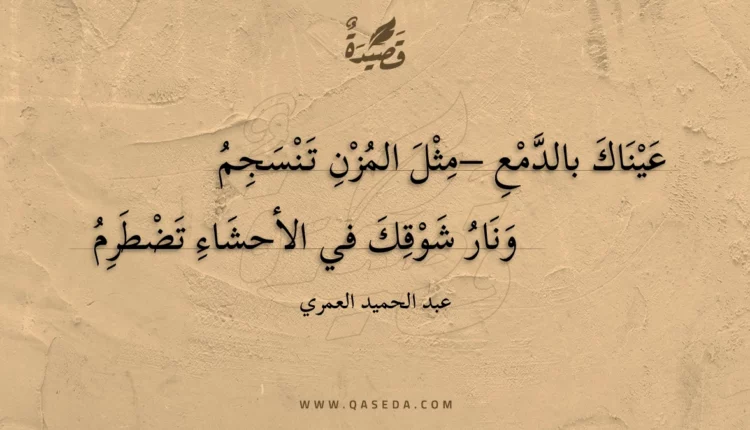 قَصِيْدَةٌ
عَيْنَاكَ بالدَّمْعِ –مِثْلَ المُزْنِ تَنْسَجِمُ
وَنَارُ شَوْقِكَ في الأحشَاءِ تَضْطَرِمُ
عبد الحميد العمري
WWW.QASEDA.COM